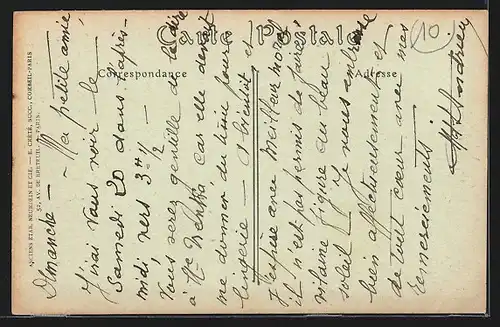 Carte Postale
Correspondance
Adresse
10
Dimanche — Ma petite amie
J'irai vous voir le
Samedi 20 dans l'après-
midi vers 3 H 1/2
Vous serez gentille de le dire
à Mme car elle devait
me donner du linon pour
lingerie — A bientôt et
J'espère avec meilleur
il n'est pas permis de faire
vilaine figure au beau
soleil — Je vous embrasse
bien affectueusement et
de tout cœur avec mes
remerciements
ANCIENS ÉTAB. NEURDEIN ET CIE. — E. CRÉTÉ, SUCC., CORBEIL-PARIS
52, AV. DE BRETEUIL, PARIS.